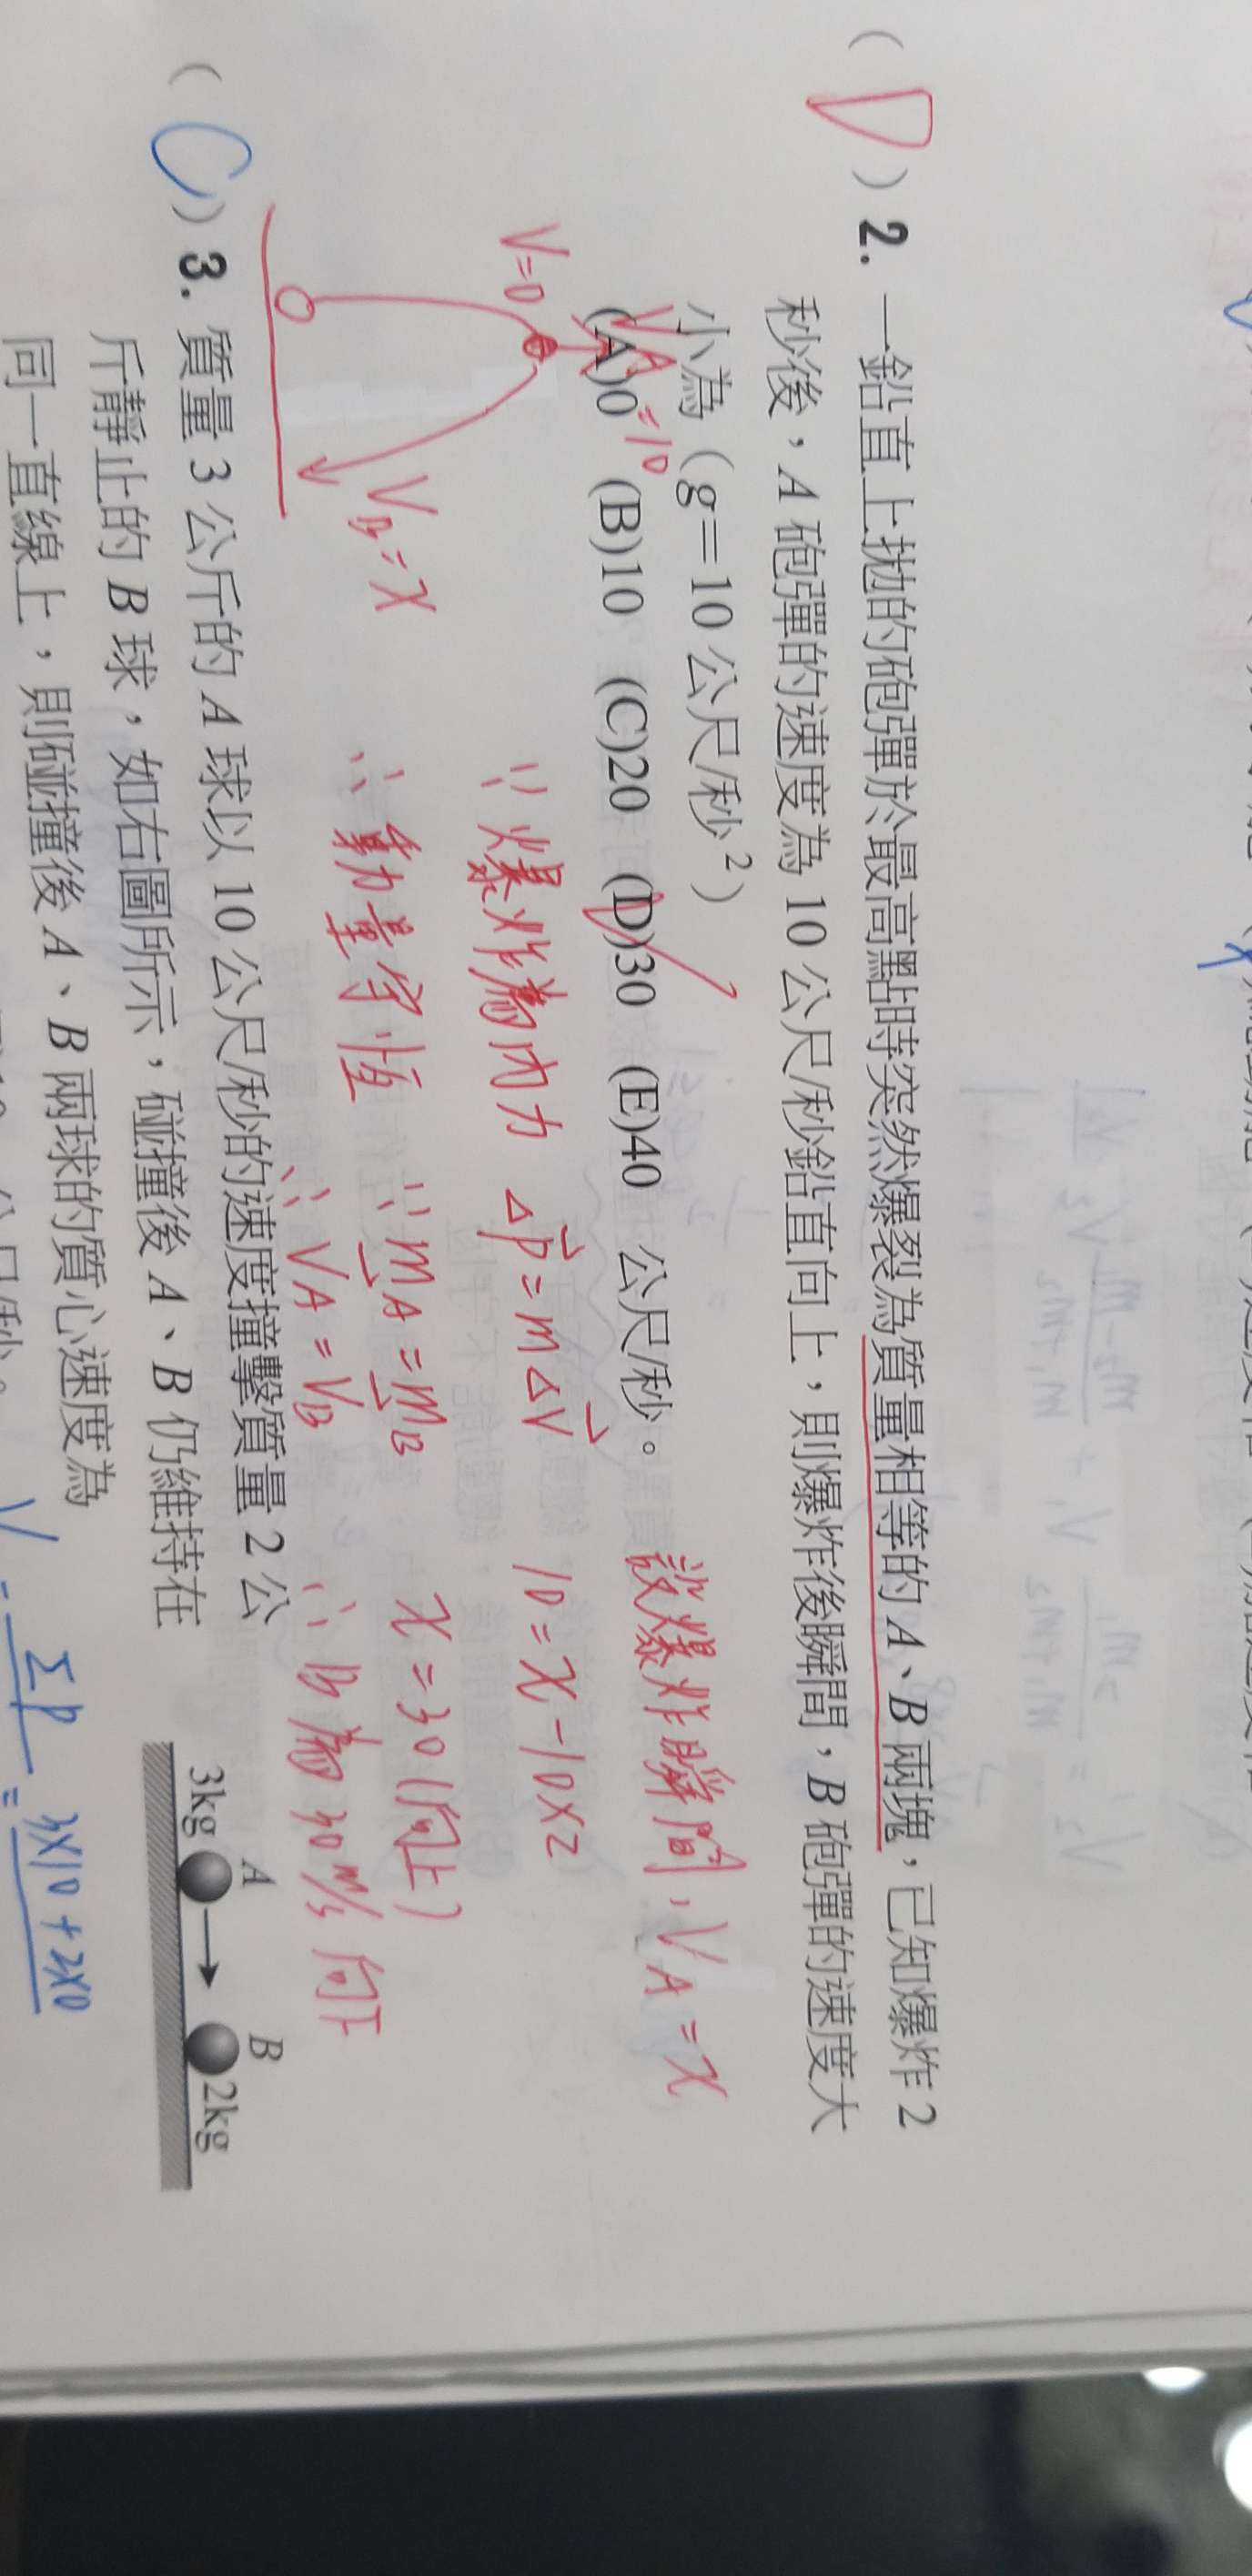 (D) 2. 一鉛直上拋的砲彈於最高點時突然爆裂為質量相等的 A、B 兩塊，已知爆炸 2
秒後，A 砲彈的速度為 10 公尺/秒鉛直向上，則爆炸後瞬間，B 砲彈的速度大
小為（g＝10 公尺/秒²）
(A)0 (B)10 (C)20 (D)30 (E)40 公尺/秒。
設爆炸瞬間，VA = x
VA = 10
V=0
∵ 爆炸為內力 Δp = mΔV
10 = x - 10×2
VB = x
∴ 動量守恆 ∵ mA = mB
x = 30 (向上)
∴ VA = VB
∴ B為 30 m/s 向下
(C) 3. 質量 3 公斤的 A 球以 10 公尺/秒的速度撞擊質量 2 公
斤靜止的 B 球，如右圖所示，碰撞後 A、B 仍維持在
同一直線上，則碰撞後 A、B 兩球的質心速度為
A B
3kg 2kg
V = ΣP = 3×10 + 2×0